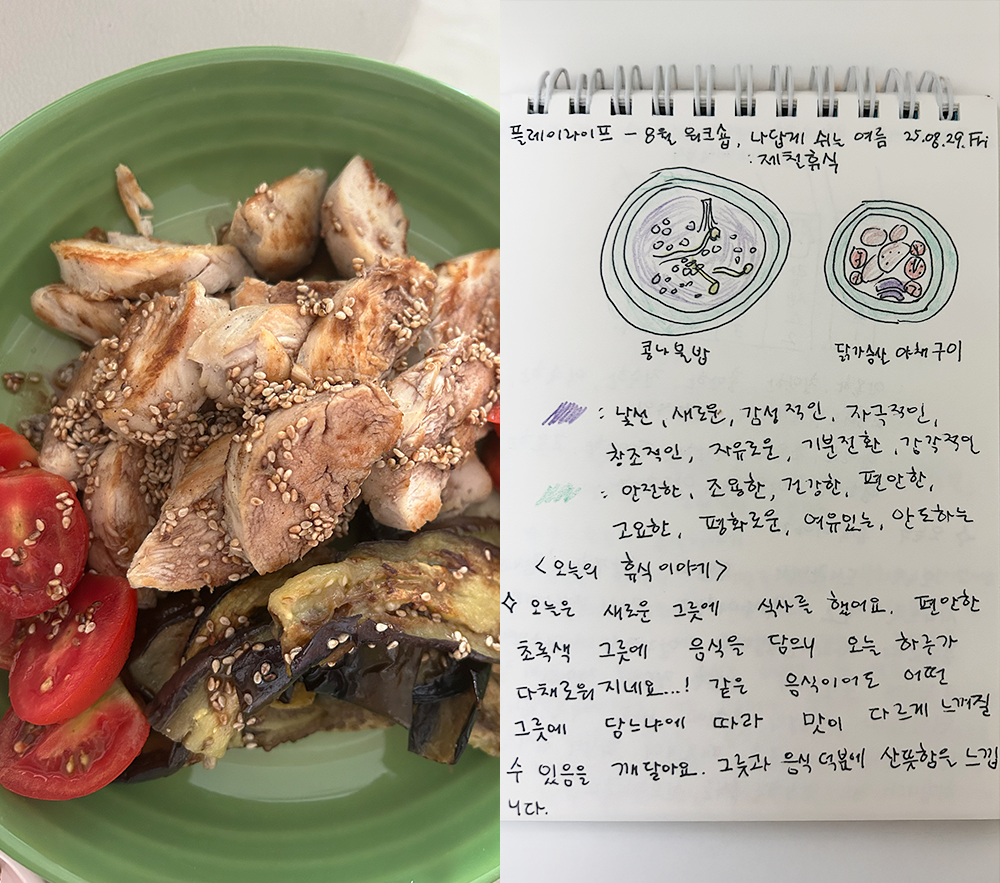 플레이라이프 - 8월 워크숍, 나답게 쉬는 여름 25.08.29.Fri
: 제철휴식
콩나물밥
닭가슴살 야채구이
: 낯선, 새로운, 감성적인, 자극적인,
창조적인, 자유로운, 기분전환, 감각적인
: 안전한, 조용한, 건강한, 편안한,
고요한, 평화로운, 여유있는, 안도하는
<오늘의 휴식 이야기>
오늘은 새로운 그릇에 식사를 했어요. 편안한
초록색 그릇에 음식을 담으니 오늘 하루가
다채로워지네요...! 같은 음식이어도 어떤
그릇에 담느냐에 따라 맛이 다르게 느껴질
수 있음을 깨달아요. 그릇과 음식 덕분에 산뜻함을 느낍
니다.